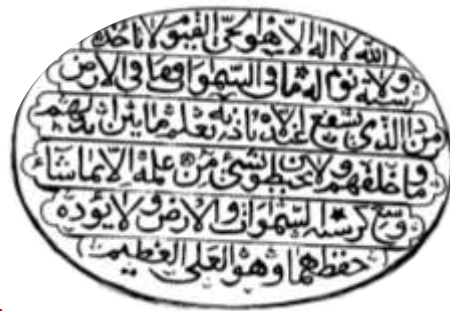 الله لا اله الا هو الحي القيوم لا تأخذه
سنة ولا نوم له ما في السموات وما في الارض
من ذا الذي يشفع عنده الا باذنه يعلم ما بين ايديهم
وما خلفهم ولا يحيطون بشئ من علمه الا بما شاء
وسع كرسيه السموات والارض ولا يؤده
حفظهما وهو العلي العظيم